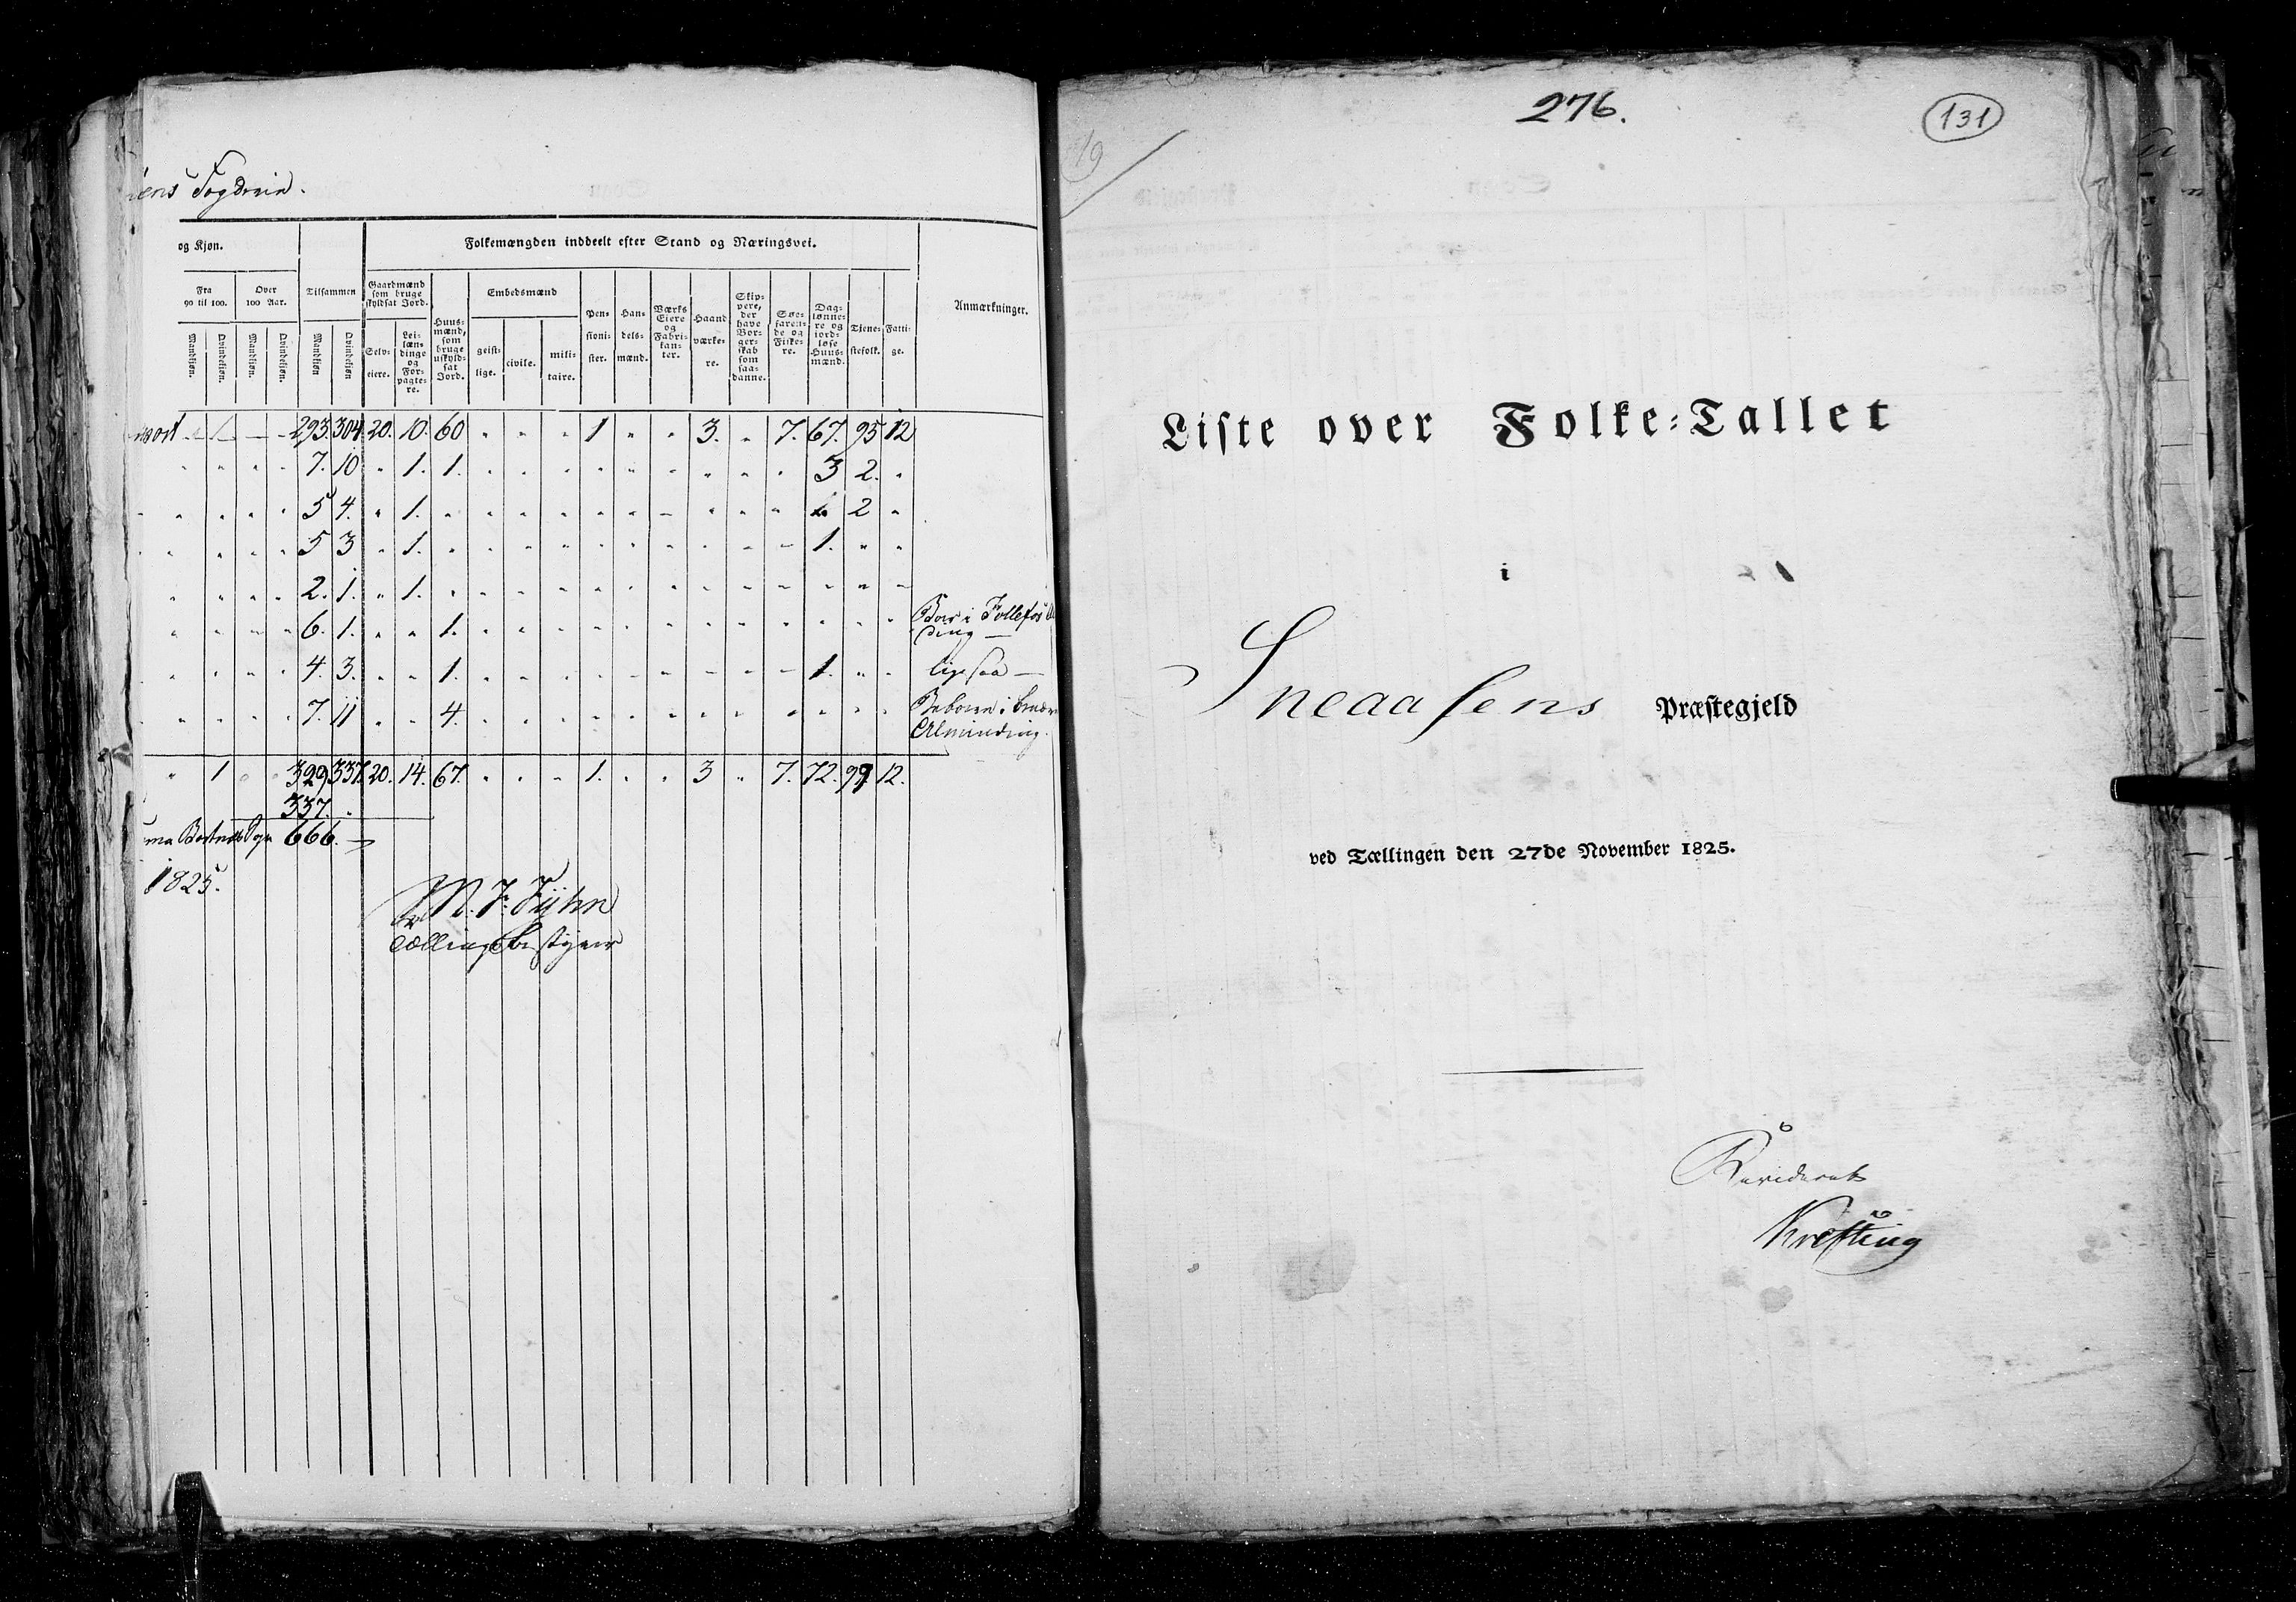 ens Fogderie.
og Kjøn.
Folkemængden inddeelt efter Stand og Næringsvei.
Anmærkninger.
Fra 90 til 100.
Over 100 Aar.
Tilsammen
Gaardmænd som bruge skyldsat Jord.
Huus-mænd, som bruge uskyld-sat Jord.
Embedsmænd
Pen-sioni-ster.
Han-dels-mænd.
Værks Eiere og Fabri-kan-ter.
Haand værke-re.
Skip-pere, der have Bor-ger-skab som saa-danne.
Søe-faren-de og Fiske-re.
Dag-lønne-re og jord-løse Huus-mænd.
Tjene-stefolk.
Fatti-ge.
Mandkjøn.
Qvindekjøn.
Mandkjøn.
Qvindekjøn.
Mandkjøn
Qvindekjøn
Selv-eiere.
Lei-læn-dinge og For-pagte-re.
geist-lige.
civile.
mili-taire.
1 - - 293. 304 20. 10. 60 " " " 1 " " 3. " 7. 67. 95 12
" " " " 7. 10 " 1. 1. " " " " " " " " " 3 2. "
" " " " 5 4. " 1. " " " " " " " " " " 2 "
" " " " 5 3 " 1. " " " " " " " " " " 1. " "
" " " " 2. 1. " 1. " " " " " " " " " " " " "
" " " " 6. 1. " " 1. " " " " " " " " " " " " Boer i
" " " " 4. 3. " " 1. " " " " " " " " " 1. " " ligesaa
" " " " 7. 11 " " 4. " " " " " " " " " " " "
Alminding.
" 1 " " 329 337. 20. 14. 67. " " " 1. " " 3 " 7. 72. 99 12.
337.
666.
1825.
M. F. Fyhn
Tællingsbestyrer
276.
131
19
Liste over Folke-Tallet
i
Sneaasens Præstegjeld
ved Tællingen den 27de November 1825.
Revideret
Krefting